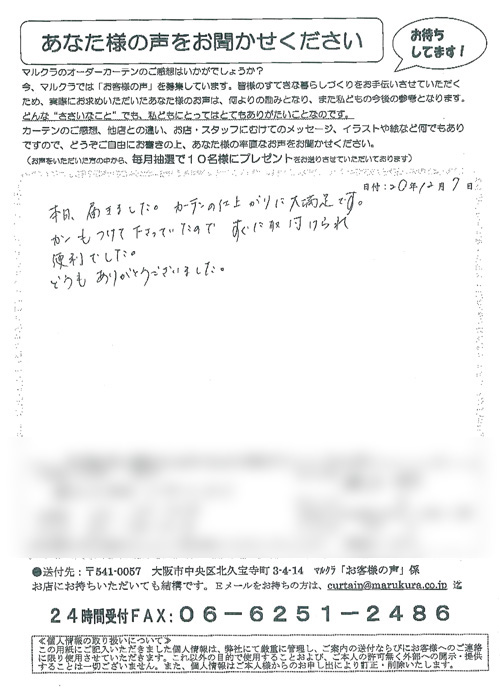 あなた様の声をお聞かせください
お待ち
してます!
マルクラのオーダーカーテンのご感想はいかがでしょうか?
今、マルクラでは「お客様の声」を募集しています。皆様のすてきな暮らしづくりをお手伝いさせていただく
ため、実際にお求めいただいたあなた様のお声は、何よりの励みとなり、また私どもの今後の参考となります。
どんな"ささいなこと"でも、私どもにとってはとてもありがたいことなのです。
カーテンのご感想、他店との違い、お店・スタッフにむけてのメッセージ、イラストや絵など何でもあり
ですので、どうぞご自由にお書きの上、あなた様の率直なお声をお聞かせください。
(お声をいただいた方の中から、毎月抽選で10名様にプレゼントをお送りさせていただいております)
日付:20年12月7日
本日、届きました。カーテンの仕上がりに大満足です。
カンもつけて下さっていたので すぐに取付けられ
便利でした。
どうもありがとうございました。
●送付先:〒541-0057 大阪市中央区北久宝寺町3-4-14 マルクラ「お客様の声」係
お店にお持ちいただいても結構です。Eメールをお持ちの方は、curtain@marukura.co.jp 迄
24時間受付FAX:06-6251-2486
≪個人情報の取り扱いについて≫
この用紙にご記入いただきました個人情報は、弊社にて厳重に管理し、ご案内の送付ならびにお客様へのご連絡
に限り使用させていただきます。これ以外の目的で使用することおよび、ご本人の許可無く外部への開示・提供
することは一切ございません。また、個人情報はご本人様からのお申し出により訂正・削除いたします。